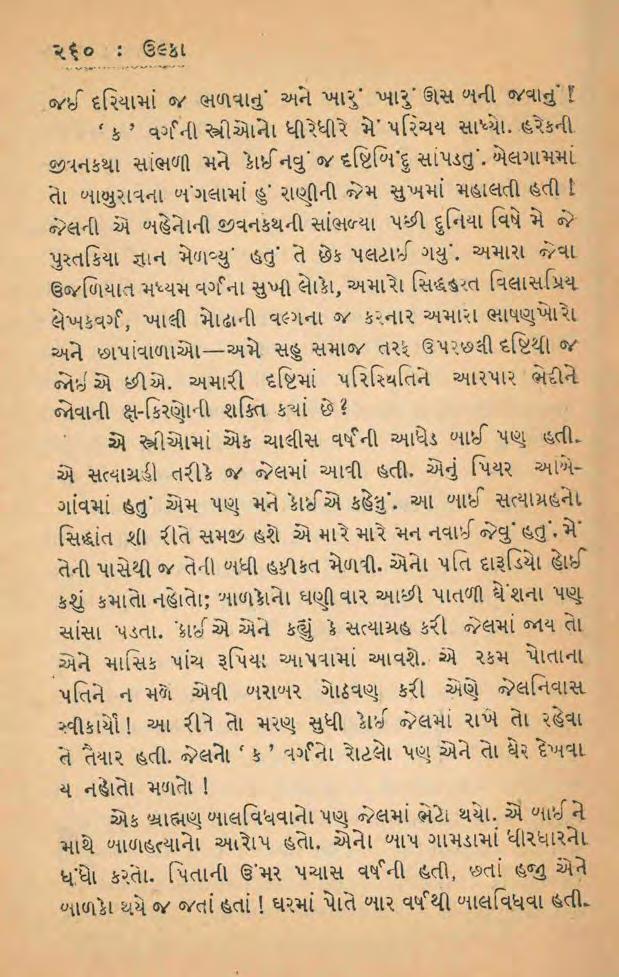 ૨૬૦ : ઉલ્કા
જઈ દરિયામાં જ ભળવાનું અને ખારું ખારું ઊસ બની જવાનું !
‘ ક ’ વર્ગની સ્ત્રીઓનો ધીરેધીરે મેં પરિચય સાધ્યો. હરેકની
જીવનકથા સાંભળી મને કોઈ નવું જ દષ્ટિબિંદુ સાંપડતું. બેલગામમાં
તો બાબુરાવના બંગલામાં હું રાણીની જેમ સુખમાં મહાલતી હતી !
જેલની એ બહેનોની જીવનકથની સાંભળ્યા પછી દુનિયા વિષે મે જે
પુસ્તકિયા જ્ઞાન મેળવ્યું હતું તે છેક પલટાઈ ગયું. અમારા જેવા
ઉજળિયાત મધ્યમ વર્ગના સુખી લોકો, અમારો સિદ્ધહસ્ત વિલાસપ્રિય
લેખકવર્ગ, ખાલી મોઢાની વલ્ગના જ કરનાર અમારા ભાષણખોરો
અને છાપાંવાળાઓ—અમે સહુ સમાજ તરફ ઉપરછલી દષ્ટિથી જ
જોઈએ છીએ. અમારી દષ્ટિમાં પરિસ્થિતિને આરપાર ભેદીને
જોવાની ક્ષ-કિરણોની શક્તિ ક્યાં છે ?
એ સ્ત્રીઓમાં એક ચાલીસ વર્ષની આધેડ બાઈ પણ હતી.
એ સત્યાગ્રહી તરીકે જ જેલમાં આવી હતી. એનું પિયર આંબે-
ગાંવમાં હતું એમ પણ મને કોઈએ કહેલું. આ બાઈ સત્યાગ્રહનો
સિદ્ધાંત શી રીતે સમજી હશે એ મારે મારે મન નવાઈ જેવું હતું. મેં
તેની પાસેથી જ તેની બધી હકીકત મેળવી. એનો પતિ દારૂડિયો હોઈ
કશું કમાતો નહોતો; બાળકોનો ઘણી વાર આછી પાતળી ઘેંશના પણ
સાંસા પડતા. કોઈએ એને કહ્યું કે સત્યાગ્રહ કરી જેલમાં જાય તો
એને માસિક પાંચ રૂપિયા આપવામાં આવશે. એ રકમ પોતાના
પતિને ન મળે એવી બરાબર ગોઠવણ કરી એણે જેલનિવાસ
સ્વીકાર્યો ! આ રીતે તો મરણ સુધી કોઈ જેલમાં રાખે તો રહેવા
તે તૈયાર હતી. જેલનો ‘ ક ’ વર્ગનો રોટલો પણ એને તો ઘેર દેખવા
ય નહોતો મળતો !
એક બ્રાહ્મણ બાલવિધવાનો પણ જેલમાં ભેટો થયો. એ બાઈને
માથે બાળહત્યાનો આરોપ હતો. એનો બાપ ગામડામાં ધીરધારનો
ધંધો કરતો. પિતાની ઉંમર પચાસ વર્ષની હતી, છતાં હજુ એને
બાળકો થયે જ જતાં હતાં ! ઘરમાં પોતે બાર વર્ષથી બાલવિધવા હતી.